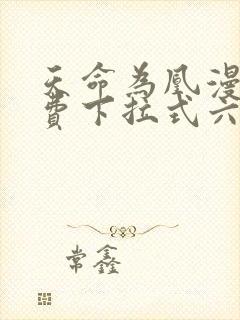 天命為凰漫
費下拉式六
常鑫